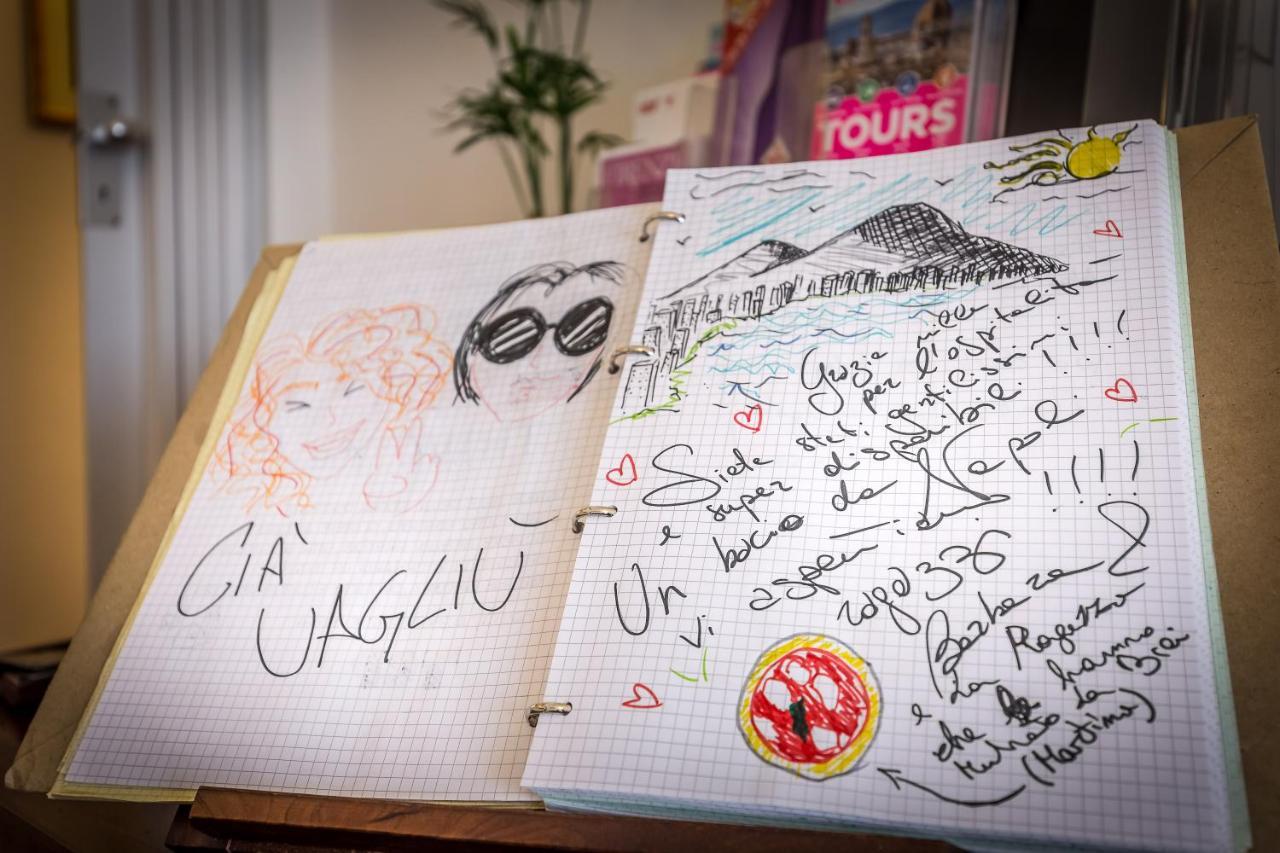 TOURS
CIA'
UAGLIU
Grazie mille
per l'ospitalit
Siete stati gentilissimi
e super disponibili !!!!!
Un bacio da Napoli
Vi aspettiamo !!!!
Barbara
e la Ragazza
che le hanno
rubato la
(Martina)